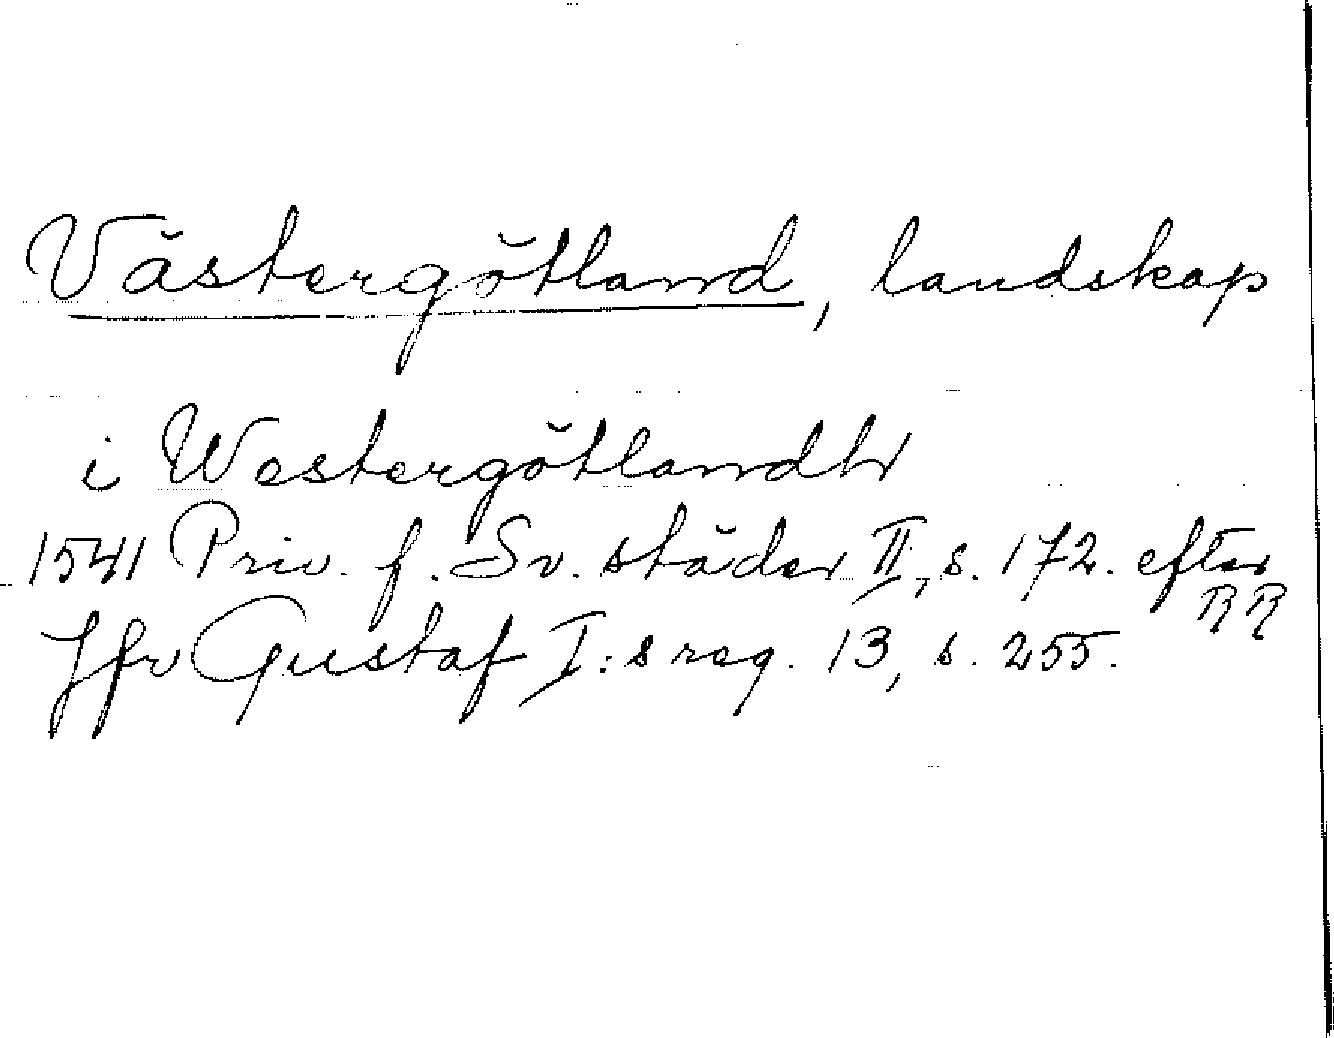 Västergötland, landskap
i Westergötlandh
1541 Priv. f. Sv. städer II, s. 172. efter RR
Jfr Gustaf I:s reg. 13, s. 255.